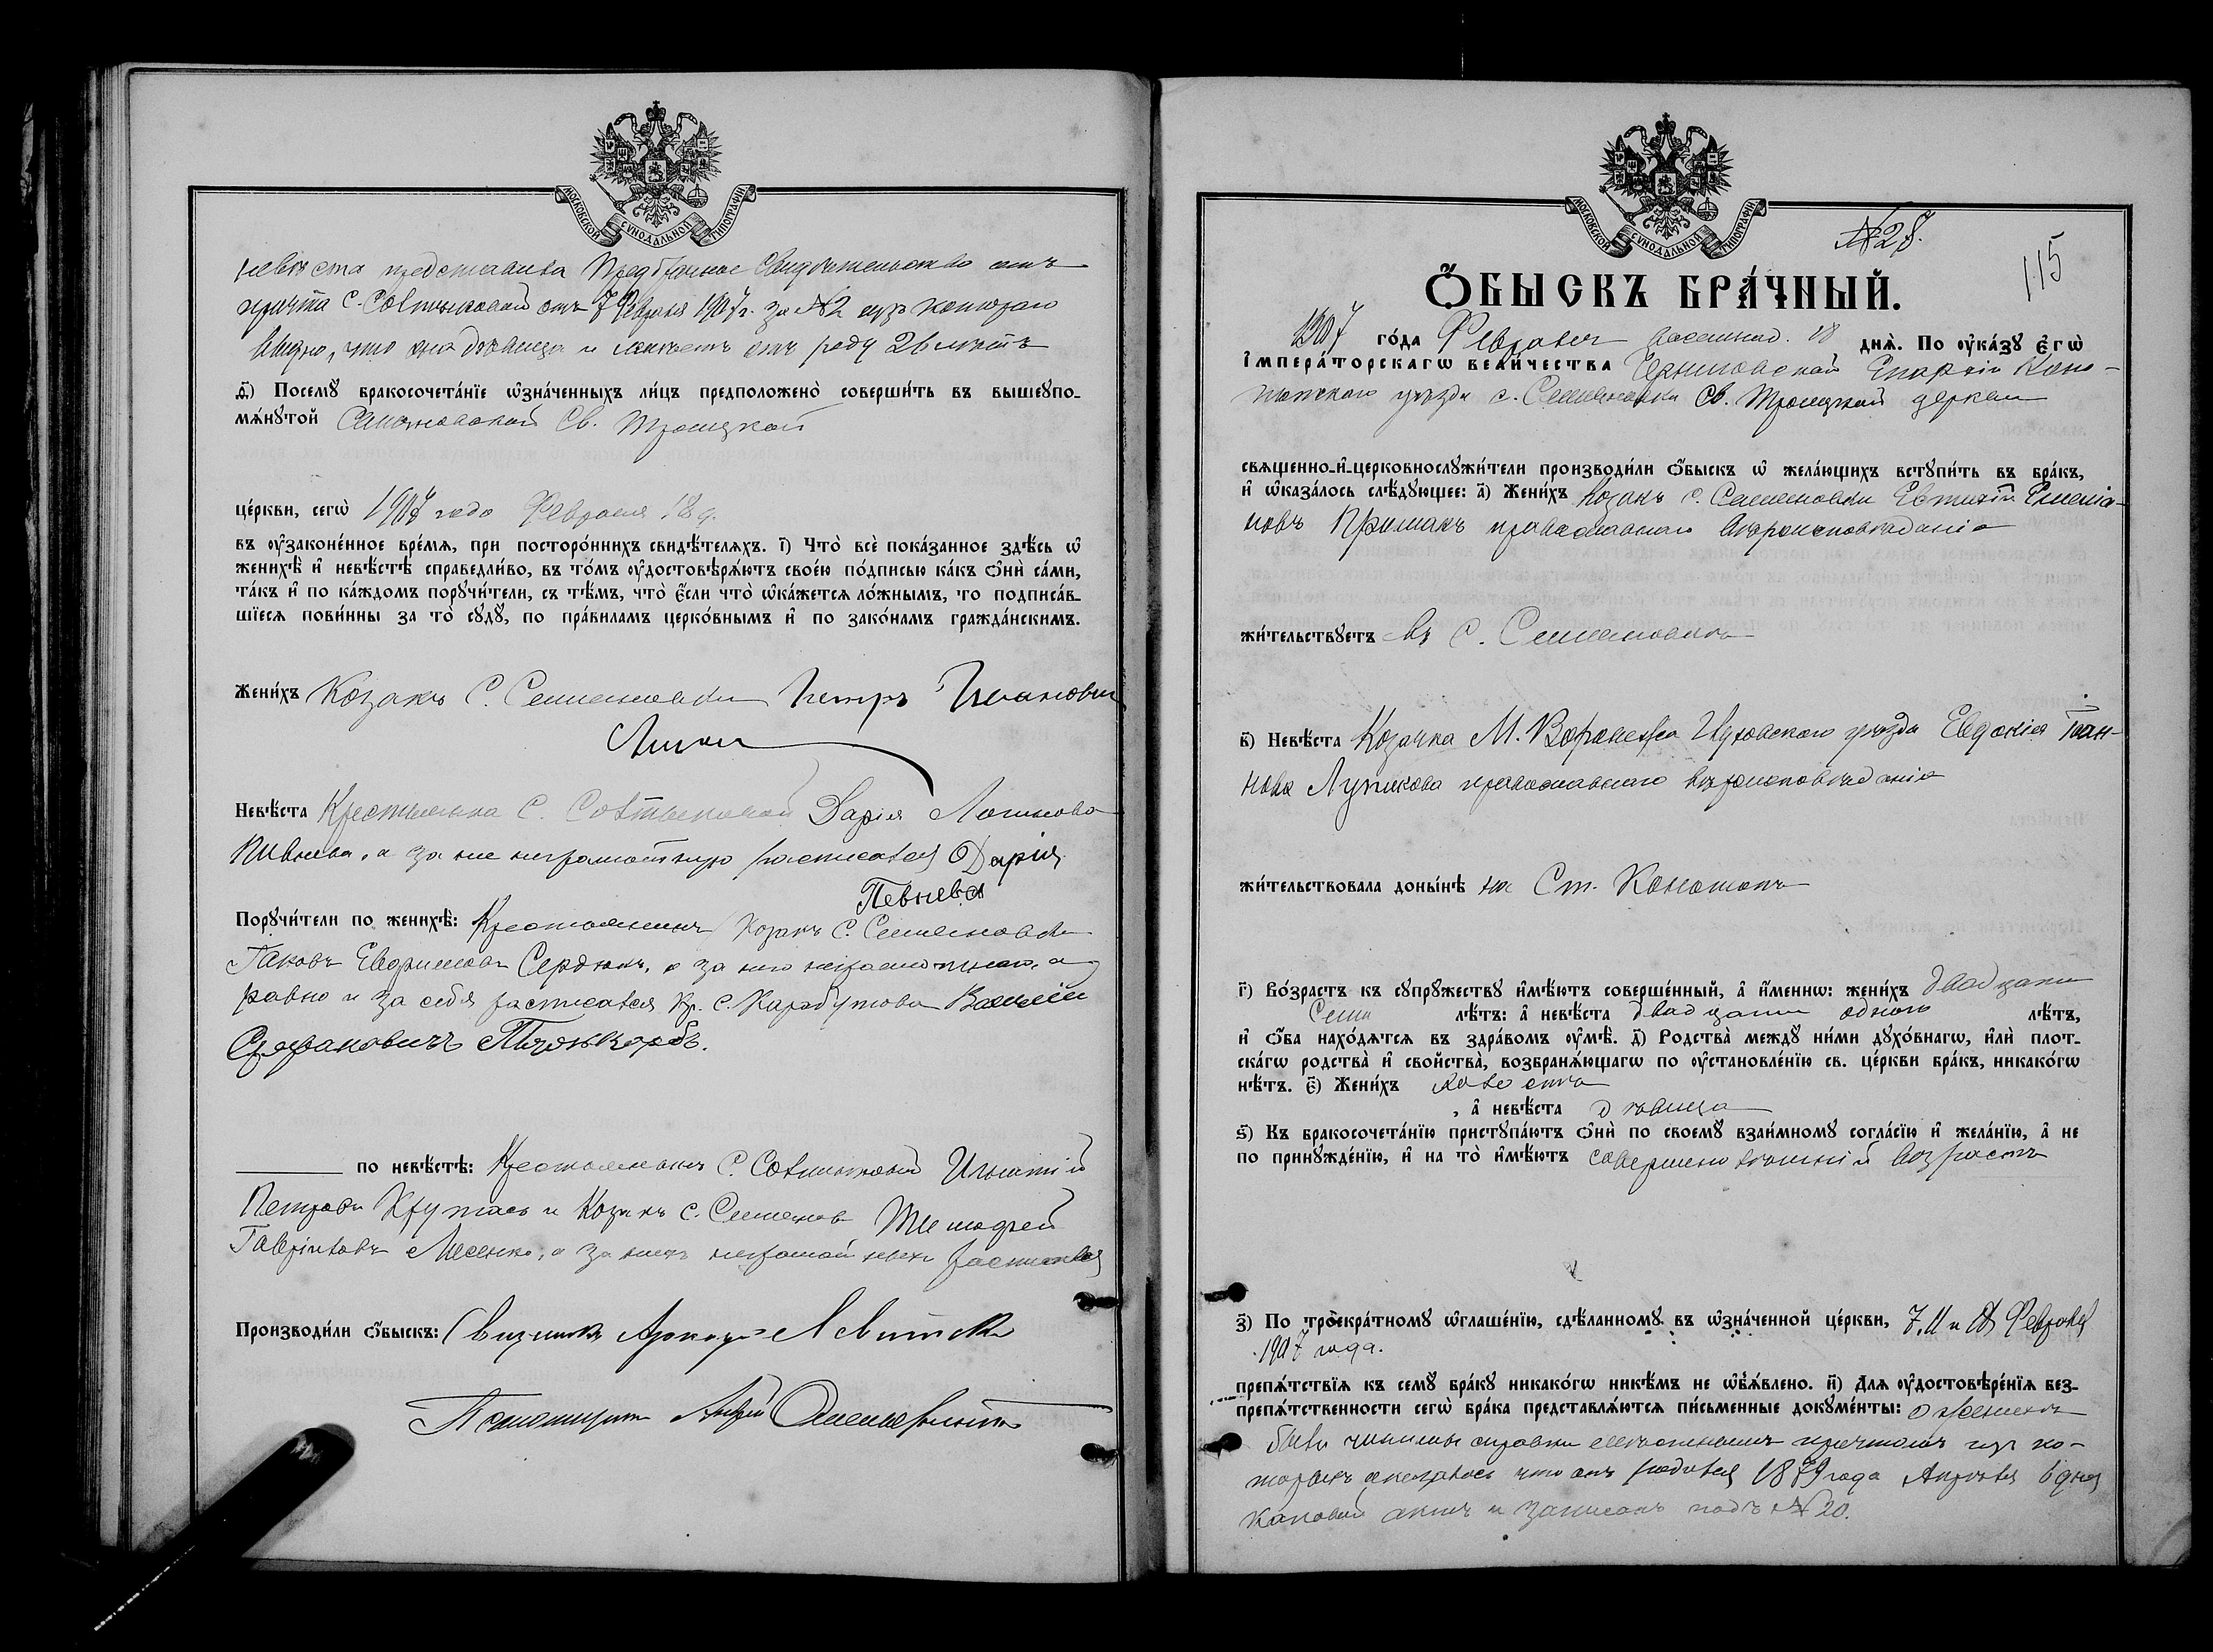 МОСКОВСКОЙ СУНОДАЛЬНОЙ ТИПОГРАФІИ
невѣста представила Предбрачное Свидѣтельство отъ
причта С. отъ 7 Февраля 1907 г. за №2 изъ котораго
видно, что она дѣвица и имѣетъ отъ роду 26 лѣтъ
д҃) Посемꙋ̀ бракосочета́нїе ѡ҆зна́ченныхъ ли́цъ предположено̀ соверши́ть въ вышеꙋпо-
мѧ́нꙋтой Семяновской Св. Троицкой
це́ркви, сегѡ̀ 1907 года Февраля 18 д.
въ ᲂу҆законе́нное вре́мѧ, при посторо́ннихъ свидѣ́телѧхъ. і҃) Что̀ всѐ пока́занное здѣ́сь ѡ҆
женихѣ̀ и҆ невѣ́стѣ справедли́во, въ то́мъ ᲂу҆достовѣрѧ́ютъ свое́ю по́дписью ка́къ ѻ҆нѝ са́ми,
та́къ и҆ по ка́ждомъ порꙋчи́тели, съ тѣ́мъ, что̀ є҆́сли что̀ ѡ҆ка́жетсѧ ло́жнымъ, то подписа́в-
шїесѧ пови́нны за то̀ сꙋдꙋ̀, по пра́виламъ церко́внымъ и҆ по зако́намъ гражда́нскимъ.
Жени́хъ Козакъ С. Семеновки Петръ Ивановичъ
Невѣ́ста Крестьянка С. Дарія Логинова
Пивнева, а за нее неграмотную расписался Дарія
Певнева
Порꙋчи́тели по женихѣ̀: Крестьянинъ Козакъ С. Семеновки
Іаковъ Евфимовъ Сердюкъ, а за него неграмотнаго, а
равно и за себя расписался кр. с. Карабутова Василій
Стефановичъ
по невѣ́стѣ: Крестьянинъ С. Игнатій
Петровъ и Козакъ с. Семенов Тимофей
Гавріиловъ а за нихъ неграмотныхъ расписался
Производи́ли ѻ҆́быскъ: Священникъ Аркадій Левитскій
Псаломщикъ Андрей
МОСКОВСКОЙ СУНОДАЛЬНОЙ ТИПОГРАФІИ
№28.
115
Ѻ҆́БЫСКЪ БРА́ЧНЫЙ.
1907 го́да Февраля восемнад. 18 днѧ̀. По ᲂу҆ка́зꙋ є҆гѡ̀
і҆мпера́торскагѡ вели́чества Черниговской Епархіи Коно-
топскаго уѣзда с. Семяновки Св. Троицкой церкви
свѧщенно-и҆-церковнослꙋжи́тели производи́ли ѻ҆́быскъ ѡ҆ жела́ющихъ встꙋпи́ть въ бра́къ,
и҆ ѡ҆каза́лось слѣ́дꙋющее: а҃) Жени́хъ козакъ с. Семеновки Евтихій Емелiа-
новъ Примакъ православнаго вѣроисповѣданія
жи́тельствꙋетъ въ С. Семеновкѣ
в҃) Невѣ́ста Козачка М. Воронежа Глуховскаго уѣзда Евдокія Іоан-
нова Лупикова православнаго вѣроисповѣданія
жи́тельствовала доны́нѣ на Ст. Конотопъ
г҃) Во́зрастъ къ сꙋпрꙋ́жествꙋ и҆мѣ́ютъ соверше́нный, а҆ и҆́меннѡ: жени́хъ двадцати
семи лѣ́тъ: а҆ невѣ́ста двадцати одного лѣ́тъ,
и҆ ѻ҆́ба нахо́дѧтсѧ въ здра́вомъ ᲂу҆мѣ̀. д҃) Родства̀ междꙋ̀ ни́ми дꙋхо́внагѡ, и҆лѝ плот-
ска́гѡ родства̀ и҆ свойства̀, возбранѧ́ющагѡ по ᲂу҆становле́нїю св. це́ркви бра́къ, никако́гѡ
нѣ́тъ. є҃) Жени́хъ холостъ
, а҆ невѣ́ста дѣвица
ѕ҃) Къ бракосочета́нїю пристꙋпа́ютъ ѻ҆нѝ по своемꙋ̀ взаи́мномꙋ согла́сїю и҆ жела́нїю, а҆ не
по принꙋжде́нїю, и҆ на то̀ и҆мѣ́ютъ совершеннолѣтній возрастъ
з҃) По троекра́тномꙋ ѡ҆глаше́нїю, сдѣ́ланномꙋ въ ѡ҆зна́ченной це́ркви, 7, 11 и Февраля
1907 года.
препѧ́тствїѧ къ семꙋ̀ бра́кꙋ никако́гѡ никѣ́мъ не ѡ҆б̾ѧ́влено. и҃) Длѧ ᲂу҆достовѣре́нїѧ без-
препѧ́тственности сегѡ̀ бра́ка представлѧ́ютсѧ пи́сьменные докꙋме́нты: о женихѣ
были чинимы справки мѣстнымъ причтомъ изъ ко-
торыхъ оказалось что онъ родился 1879 года Апрѣля 6 дня
каковой актъ и записанъ подъ №20.